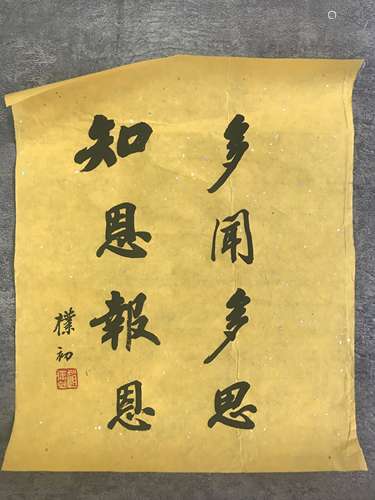 多闻多思
知恩報恩
樸初